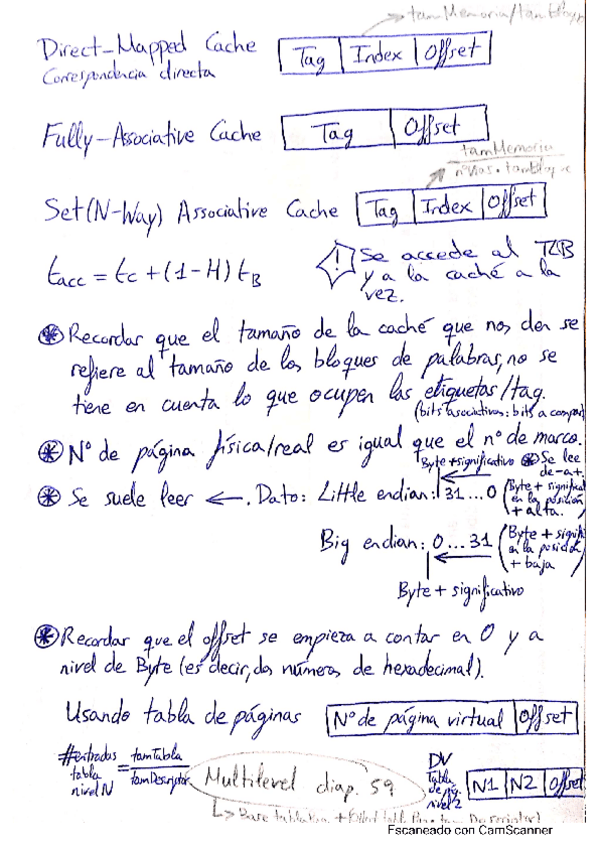 tamMemoria/tambloque
Direct-Mapped Cache
Tag | Index | Offset
Correspondencia directa
Fully-Associative Cache
Tag | Offset
tamMemoria
nºvías·tambloque
Set(N-Way) Associative Cache
Tag | Index | Offset
tacc = tc + (1-H) tB
! Se accede al TLB
y a la caché a la
vez.
* Recordar que el tamaño de la caché que nos den se
refiere al tamaño de los bloques de palabras, no se
tiene en cuenta lo que ocupen las etiquetas/tag.
(bits asociativos: bits a compar
* Nº de página física/real es igual que el nº de marco.
Byte + significativo
* Se lee
de - a +.
* Se suele leer ←. Dato: Little endian: 31...0
(Byte + significat
en la posición
+ alta.
Big endian: 0...31
(Byte + signifi
en la posición
+ baja
Byte + significativo
* Recordar que el offset se empieza a contar en 0 y a
nivel de Byte (es decir, dos números de hexadecimal).
Usando tabla de páginas
Nº de página virtual | Offset
#entradas
tabla
nivel N
= tamTabla
tamDescriptor
Multilevel diap. 59
DV
Tabla
de pág.
nivel 2
N1 | N2 | Offset
↳ Base tabla
Escaneado con CamScanner